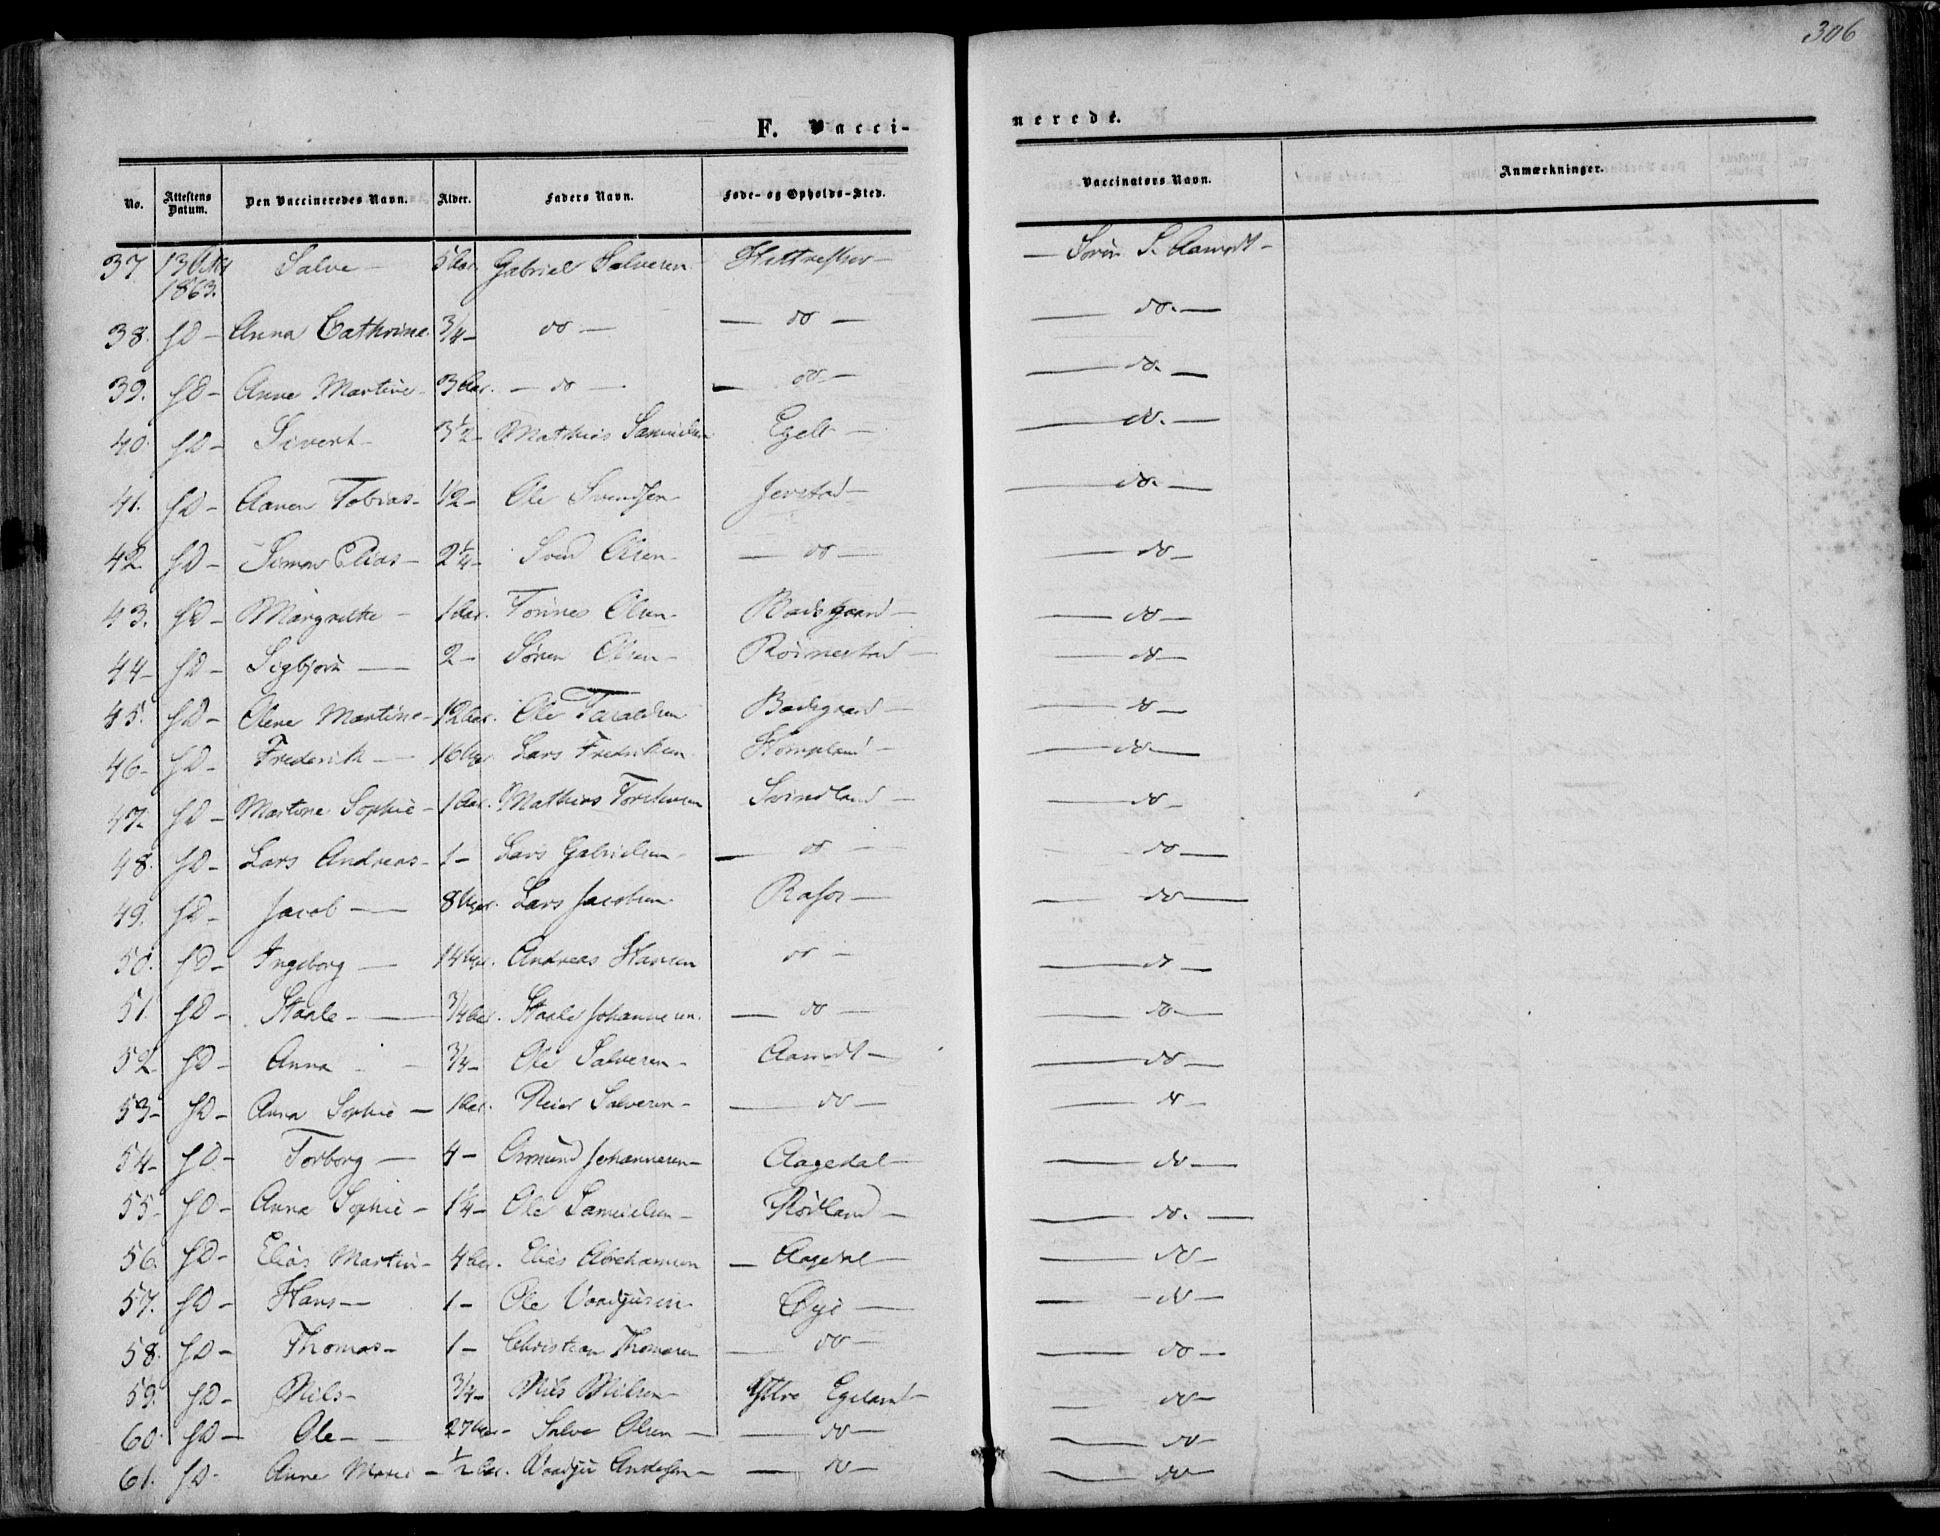 306
F. Vaccinerede.
No. Attestens Datum. Den Vaccineredes Navn. Alder. Faders Navn. Føde- og Opholds-Sted. Vaccinators Navn. Anmærkninger.
37. 13 Octb 1863. Salve — 5 Aar. Gabriel Salvesen — Sørin S. Aamodt —
38. sD — Anna Cathrine. 3/4 — do — — do — — do. —
39. sD — Anne Martine — 3 Aar. — do — — do — — do. —
40. sD — Sivert — 3 1/2 — Mathias Samuelsen — do. —
41. sD — Aanen Tobias — 1/2 — Ole Svendsen — Jerstad — — do. —
42. sD — Simon Elias — 2 1/4 — Svend Olsen — — do — — do —
43. sD — Margrethe — 1 Aar. Tønnes Olsen — — do —
44 — sD — Sigbjørn — 2 — Søren Olsen — Röinestad — — do —
45. sD — Olene Martine — 12 Aar. Ole Taraldsen — do —
46 — sD — Frederik — 16 Lars Fredriksen Kompland — — do —
47. sD — Martine Sophie — 1 Aar. Mathias Torkelsen Svindland — — do —
48. sD — Lars Andreas — 1 — Lars Gabrielsen — — do — — do —
49. sD — Jacob — 8 Lars Jacobsen. Rafos — — do —
50. sD — Ingeborg — 14 Andreas Hansen do — — do —
51. sD — Staale — 3/4 Aar. Staale Johannesen. — do — — do —
52. sD — Anna — 3/4 — Ole Salvesen — Aamodt — — do —
53 — sD — Anna Sophie — 1 Aar. Peder Salvesen — — do — — do —
54 — sD — Torborg — 4 — Osmund Johannesen — Aagedal — — do —
55 — sD — Anna Sophie — 1 1/4 — Ole Samuelsen — Rødland — — do. —
56. sD — Elias Martin — 4 Aar. Elias Abrahamsen — Aagedal — — do —
57. sD — Hans — 1 — Ole Vradjusen — Øye — — do —
58. sD — Thomas — 1 — Christian Thomasen — do — — do —
59. sD — Nils — 3/4 — Nils Nilsen — Yttre Egeland — — do —
60. sD — Ole — 27 Salve Olsen — — do — — do —
61. sD — Anne Marie — 1/2 Aar. Andersen — — do — — do —